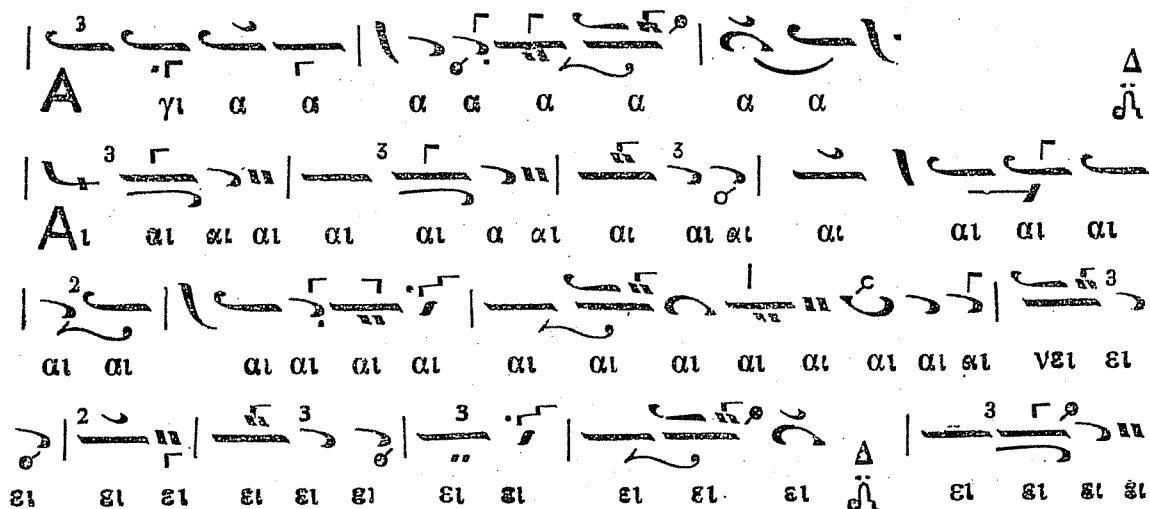 3
Α γι α α α α α α α α Δ
3 3 3
Αι αι αι αι αι αι α αι αι αι αι αι αι αι αι
2 3
αι αι αι αι αι αι αι αι αι αι αι αι αι αι νει ει
2 3 3 3
ει ει ει ει ει ει ει ει ει ει ει Δ ει ει ει ει